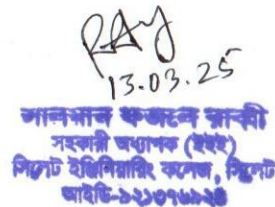 RAy
13.03.25
সালমান ফজলে রাব্বী
সহকারী অধ্যাপক (ইইই)
সিলেট ইঞ্জিনিয়ারিং কলেজ, সিলেট
আইডি-